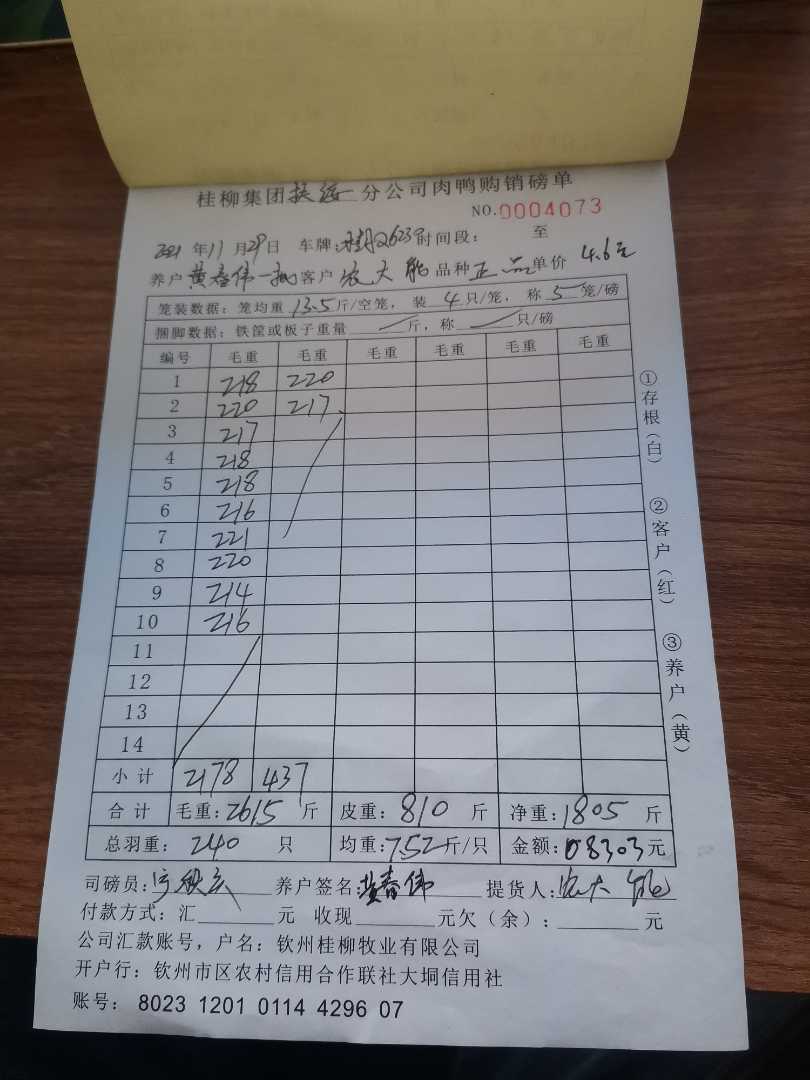 桂柳集团扶绥分公司肉鸭购销磅单
NO.0004073
2021年11月29日 车牌:桂 时间段: 至
养户黄春伟一批客户农大能品种正品单价4.6元
笼装数据:笼均重13.5斤/空笼,装4只/笼,称5笼/磅
捆脚数据:铁筐或板子重量 斤,称 只/磅
编号 毛重 毛重 毛重 毛重 毛重 毛重
1 218 220
2 220 217
3 217
4 218
5 218
6 216
7 221
8 220
9 214
10 216
11
12
13
14
小计 2178 437
合计 毛重:2615斤 皮重:810斤 净重:1805斤
总羽重:240只 均重:7.52斤/只 金额:08303元
司磅员: 养户签名:黄春伟 提货人:农大能
付款方式:汇 元 收现 元欠(余): 元
公司汇款账号,户名:钦州桂柳牧业有限公司
开户行:钦州市区农村信用合作联社大垌信用社
账号: 8023 1201 0114 4296 07
①存根(白) ②客户(红) ③养户(黄)